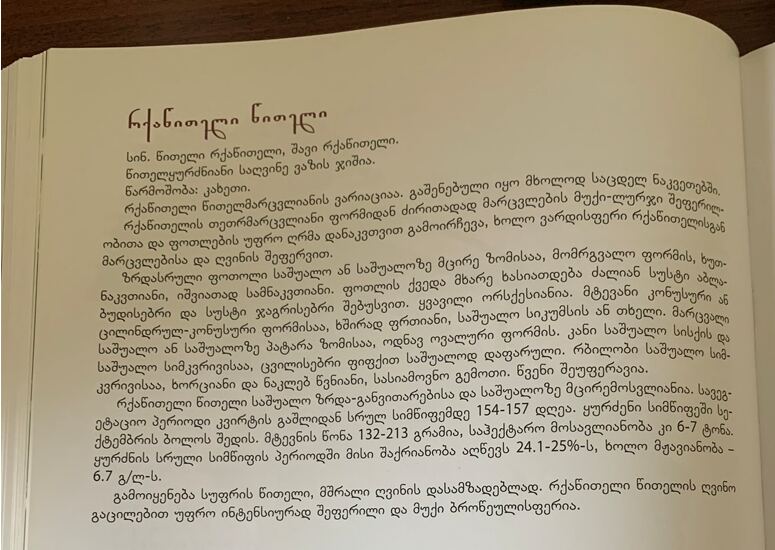 რქაწითელი წითელი
სინ. წითელი რქაწითელი, შავი რქაწითელი.
წითელყურძნიანი საღვინე ვაზის ჯიშია.
წარმოშობა: კახეთი.
რქაწითელი წითელმარცვლიანის ვარიაციაა. გაშენებული იყო მხოლოდ საცდელ ნაკვეთებში.
რქაწითელის თეთრმარცვლიანი ფორმიდან ძირითადად მარცვლების მუქი-ლურჯი შეფერილ-
ობითა და ფოთლების უფრო ღრმა დანაკვთვით გამოირჩევა, ხოლო ვარდისფერი რქაწითელისგან
მარცვლებისა და ღვინის შეფერვით.
ზრდასრული ფოთოლი საშუალო ან საშუალოზე მცირე ზომისაა, მომრგვალო ფორმის, ხუთ-
ნაკვთიანი, იშვიათად სამნაკვთიანი. ფოთლის ქვედა მხარე ხასიათდება ძალიან სუსტი აბლა-
ბუდისებრი და სუსტი ჯაგრისებრი შებუსვით. ყვავილი ორსქესიანია. მტევანი კონუსური ან
ცილინდრულ-კონუსური ფორმისაა, ხშირად ფრთიანი, საშუალო სიკუმსის ან თხელი. მარცვალი
საშუალო ან საშუალოზე პატარა ზომისაა, ოდნავ ოვალური ფორმის. კანი საშუალო სისქის და
საშუალო სიმკვრივისაა, ცვილისებრი ფიფქით საშუალოდ დაფარული. რბილობი საშუალო სიმ-
კვრივისაა, ხორციანი და ნაკლებ წვნიანი, სასიამოვნო გემოთი. წვენი შეუფერავია.
რქაწითელი წითელი საშუალო ზრდა-განვითარებისა და საშუალოზე მცირემოსვლიანია. სავეგ-
ეტაციო პერიოდი კვირტის გაშლიდან სრულ სიმწიფემდე 154-157 დღეა. ყურძენი სიმწიფეში სე-
ქტემბრის ბოლოს შედის. მტევნის წონა 132-213 გრამია, საჰექტარო მოსავლიანობა კი 6-7 ტონა.
ყურძნის სრული სიმწიფის პერიოდში მისი შაქრიანობა აღწევს 24.1-25%-ს, ხოლო მჟავიანობა –
6.7 გ/ლ-ს.
გამოიყენება სუფრის წითელი, მშრალი ღვინის დასამზადებლად. რქაწითელი წითელის ღვინო
გაცილებით უფრო ინტენსიურად შეფერილი და მუქი ბროწეულისფერია.